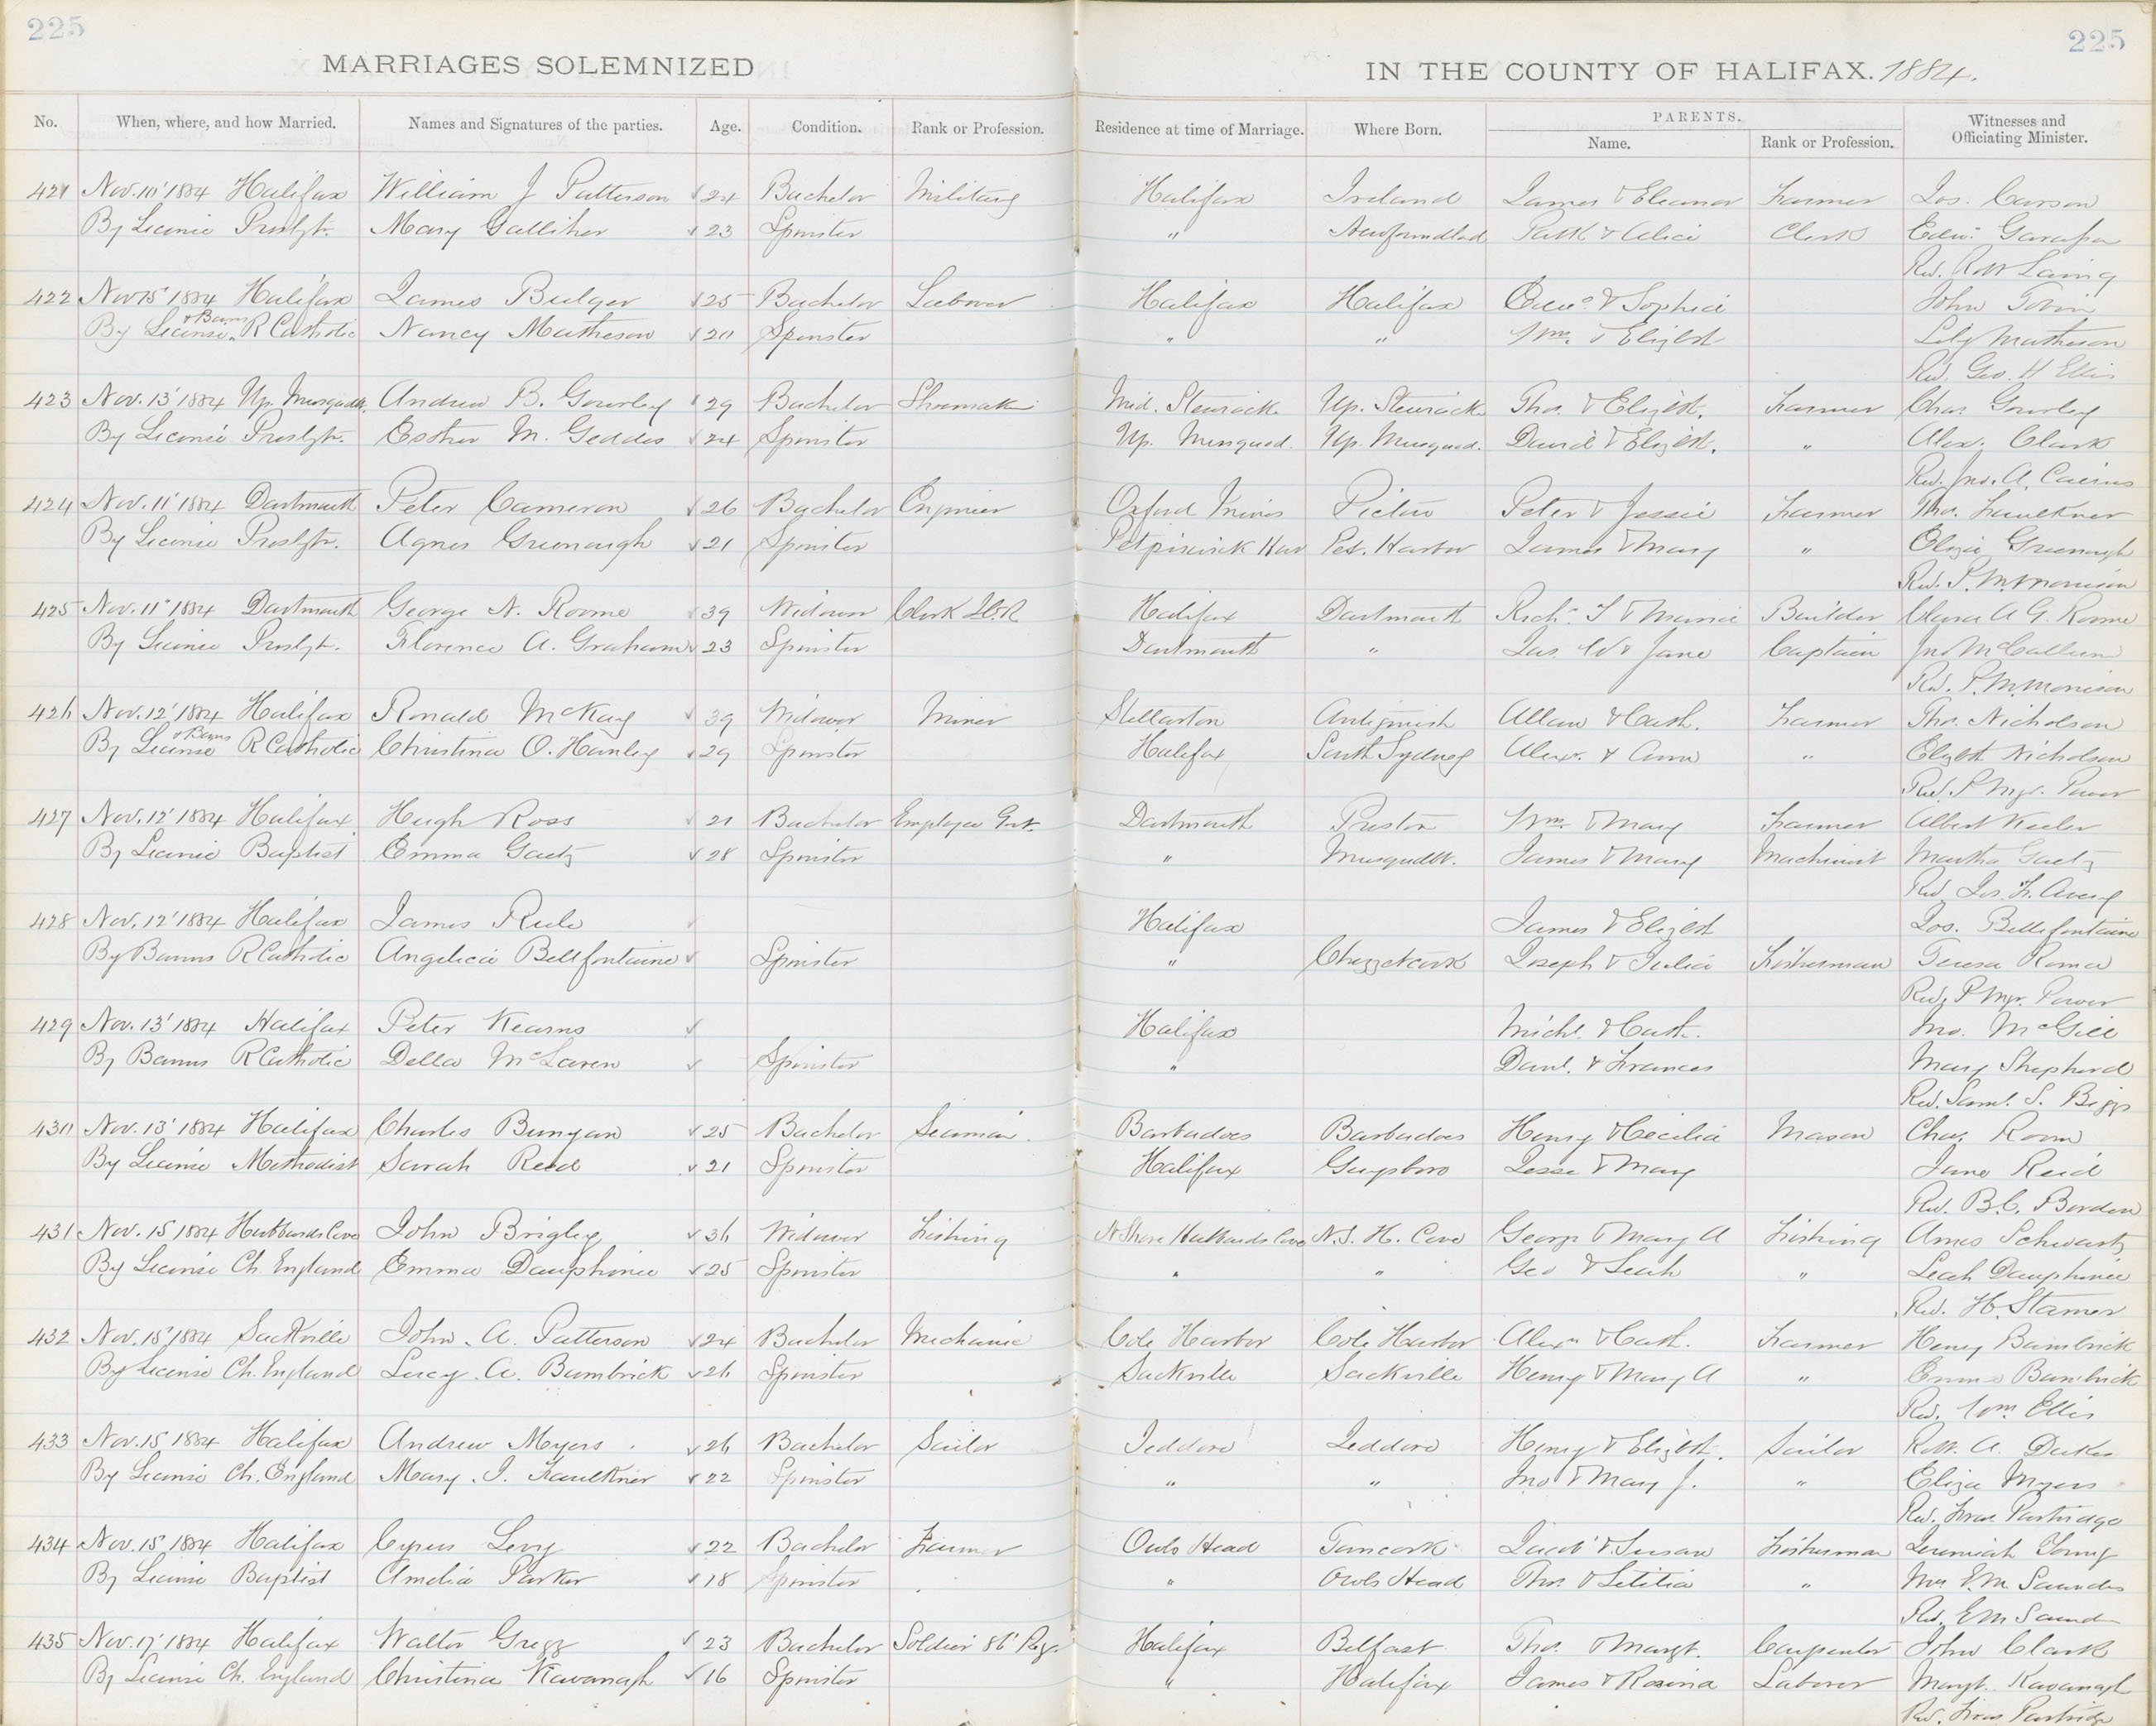 225
225
MARRIAGES SOLEMNIZED
IN THE COUNTY OF HALIFAX. 1884.
No. When, where, and how Married. Names and Signatures of the parties. Age. Condition. Rank or Profession. Residence at time of Marriage. Where Born. PARENTS. Name. Rank or Profession. Witnesses and Officiating Minister.
421 Nov. 10' 1884 Halifax William J Patterson 24 Bachelor Military Halifax Ireland James & Eleanor Farmer Jos. Carson
By License Presbytr. Mary Galliher 23 Spinster " Newfoundland Patk & Alice Clerk Edw.
Rev. Robt Laing
422 Nov 15' 1884 Halifax James Bulger 25 Bachelor Laborer Halifax Halifax Edwd & Sophia John Tobin
By License & Banns R Catholic Nancy Matheson 20 Spinster " " Wm. & Elizbt Lily Matheson
Rev. Geo. H Ellis
423 Nov. 13' 1884 Up. Musquodt. Andrew B. Gourley 29 Bachelor Shoemaker Mid. Stewiacke Up. Stewiacke Thos. & Elizbt. Farmer Chas Gourley
By License Presbytr. Esther M. Geddes 24 Spinster Up. Musquod. Up. Musquod. David & Elizbt. " Alex. Clark
Rev. Jno. A. Cairns
424 Nov. 11' 1884 Dartmouth Peter Cameron 26 Bachelor Engineer Oxford Mines Pictou Peter & Jessie Farmer Thos. Faulkner
By License Presbytr. Agnes Greenough 21 Spinster Petpiswick Har Pet. Harbor James & Mary " Eliza Greenough
Rev. P. M. Morrison
425 Nov. 11' 1884 Dartmouth George N. Roome 39 Widower Clerk I.C.R. Halifax Dartmouth Richd. & Maria Builder Clara A G. Roome
By License Presbyt. Florence A. Graham 23 Spinster Dartmouth " Jas. W & Jane Captain Jno McCallum
Rev. P. M. Morrison
426 Nov. 12' 1884 Halifax Ronald McKay 39 Widower Miner Stellarton Antignish Allan & Cath. Farmer Thos. Nicholson
By License & Banns R Catholic Christina O. Hanley 29 Spinster Halifax South Sydney Alex. & Ann " Elizbt Nicholson
Rev. P Mgr. Power
427 Nov. 12' 1884 Halifax Hugh Ross 21 Bachelor Employee Govt. Dartmouth Preston Wm. & Mary Farmer Albert Keeler
By License Baptist Emma Gaetz 28 Spinster " Musquodt. James & Mary Machinist Martha Gaetz
Rev. Jos. F. Avery
428 Nov. 12' 1884 Halifax James Rule Halifax James & Elizbt Jos. Bellefontaine
By Banns R Catholic Angelica Bellfontaine Spinster " Chezzetcook Joseph & Julia Fisherman Teresa Roma
Rev. P Mgr. Power
429 Nov. 13' 1884 Halifax Peter Kearns Halifax Michl. & Cath. Jno. McGill
By Banns R Catholic Della McLaren Spinster " Danl. & Frances Mary Shepherd
Rev. Saml. S. Biggs
430 Nov. 13' 1884 Halifax Charles Bunyan 25 Bachelor Seaman. Barbadoes Barbadoes Henry & Cecilia Mason Chas. Room
By License Methodist Sarah Reed 21 Spinster Halifax Guysboro Jesse & Mary Jane Reid
Rev. B.C. Borden
431 Nov. 15 1884 Hubbards Cove John Brigley 36 Widower Fishing N Shore Hubbards Cove N.S. H. Cove George & Mary A Fishing Amos Schwartz
By License Ch. England Emma Dauphinee 25 Spinster " " Geo & Leah " Leah Dauphinee
Rev. H. Stamer
432 Nov. 15' 1884 Sackville John. A. Patterson 24 Bachelor Mechanic Cole Harbor Cole Harbor Alexr & Cath. Farmer Henry Bambrick
By License Ch. England Lucy. A. Bambrick 26 Spinster Sackville Sackville Henry & Mary A " Emma Bambrick
Rev. Wm Ellis
433 Nov. 15 1884 Halifax Andrew Myers 26 Bachelor Sailor Jeddore Jeddore Henry & Elizbt. Sailor Robt. A. Dakes
By License Ch. England Mary. J. Faulkner 22 Spinster " " Jno & Mary J. " Eliza Myers
Rev. Fras Partridge
434 Nov. 15' 1884 Halifax Cyrus Levy 22 Bachelor Farmer Owls Head Tancook Jacob & Susan Fisherman Jeremiah Young
By License Baptist Amelia Parker 18 Spinster " Owls Head Thos & Letitia " Mrs E.M. Saunders
Rev. E M Saunders
435 Nov. 17' 1884 Halifax Walter Gregg 23 Bachelor Soldier 86' Reg. Halifax Belfast Thos. & Margt. Carpenter John Clark
By License Ch. England Christina Kavanagh 16 Spinster " Halifax James & Rosina Laborer Margt. Kavanagh
Rev. Fras Partridge